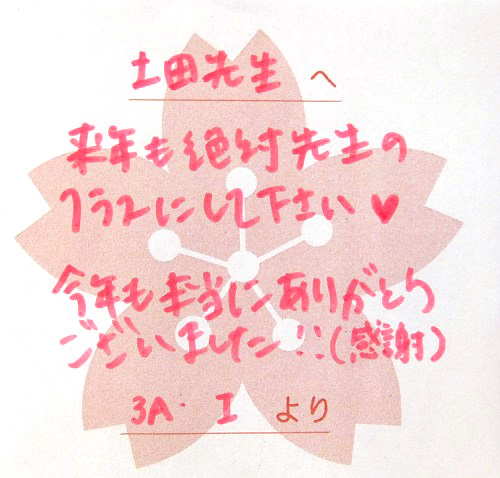 土田先生 へ
来年も絶対先生の
クラスにして下さい♥
今年も本当にありがとう
ございました!!(感謝)
3A・I より